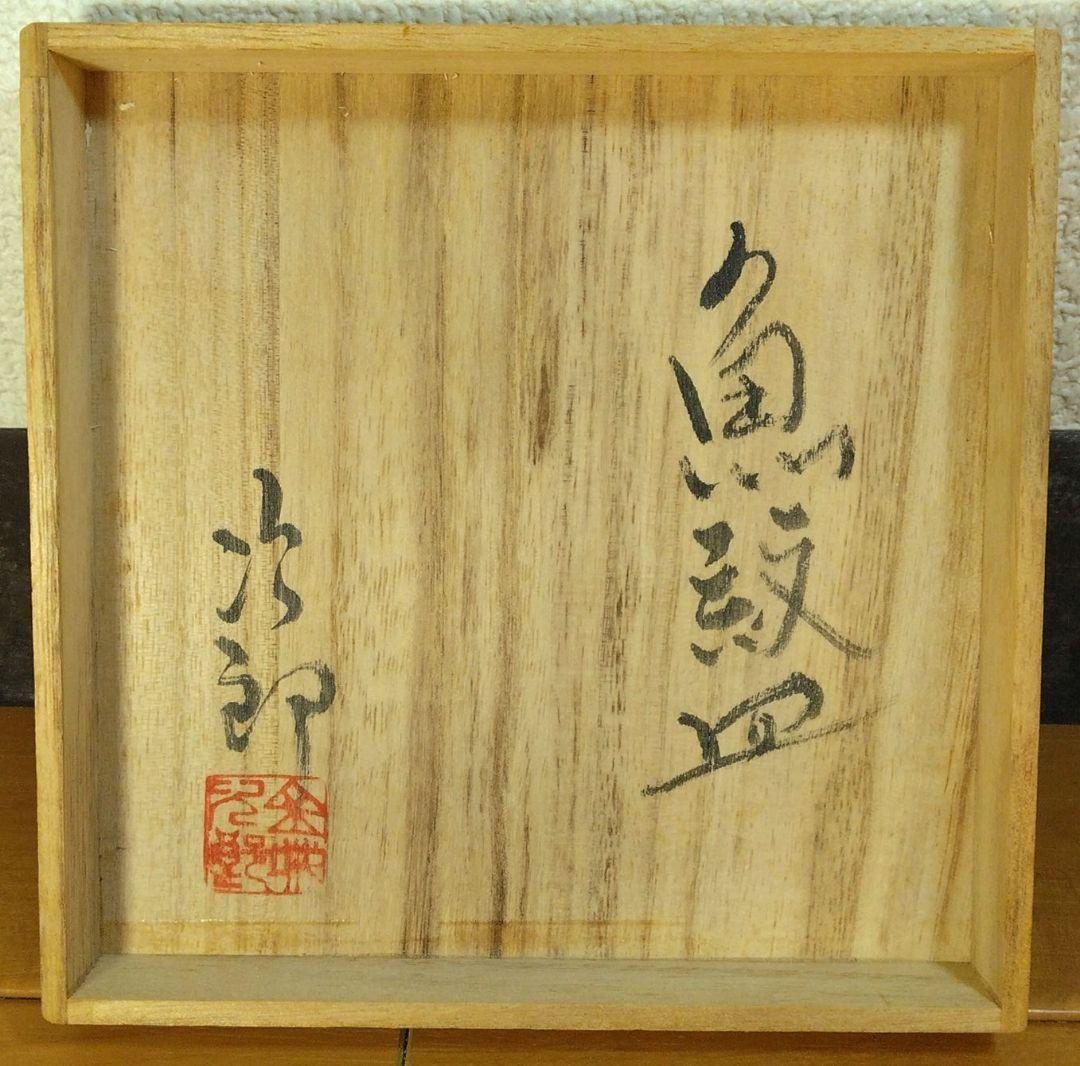 魚紋皿
次郎